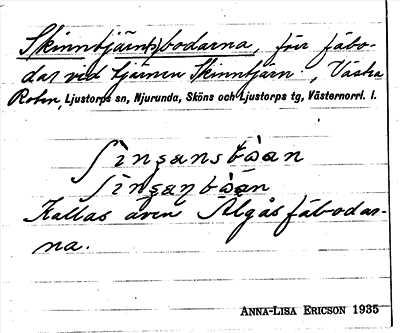 Skinntjärn(s)bodarna, förr fäbo-
dar vid tjärnen Skinntjärn, Västra
Roten, Ljustorps sn, Njurunda, Sköns och Ljustorps tg, Västernorrl. l.
Kallas även Älgåsfäbodar-
na.
ANNA-LISA ERICSON 1935